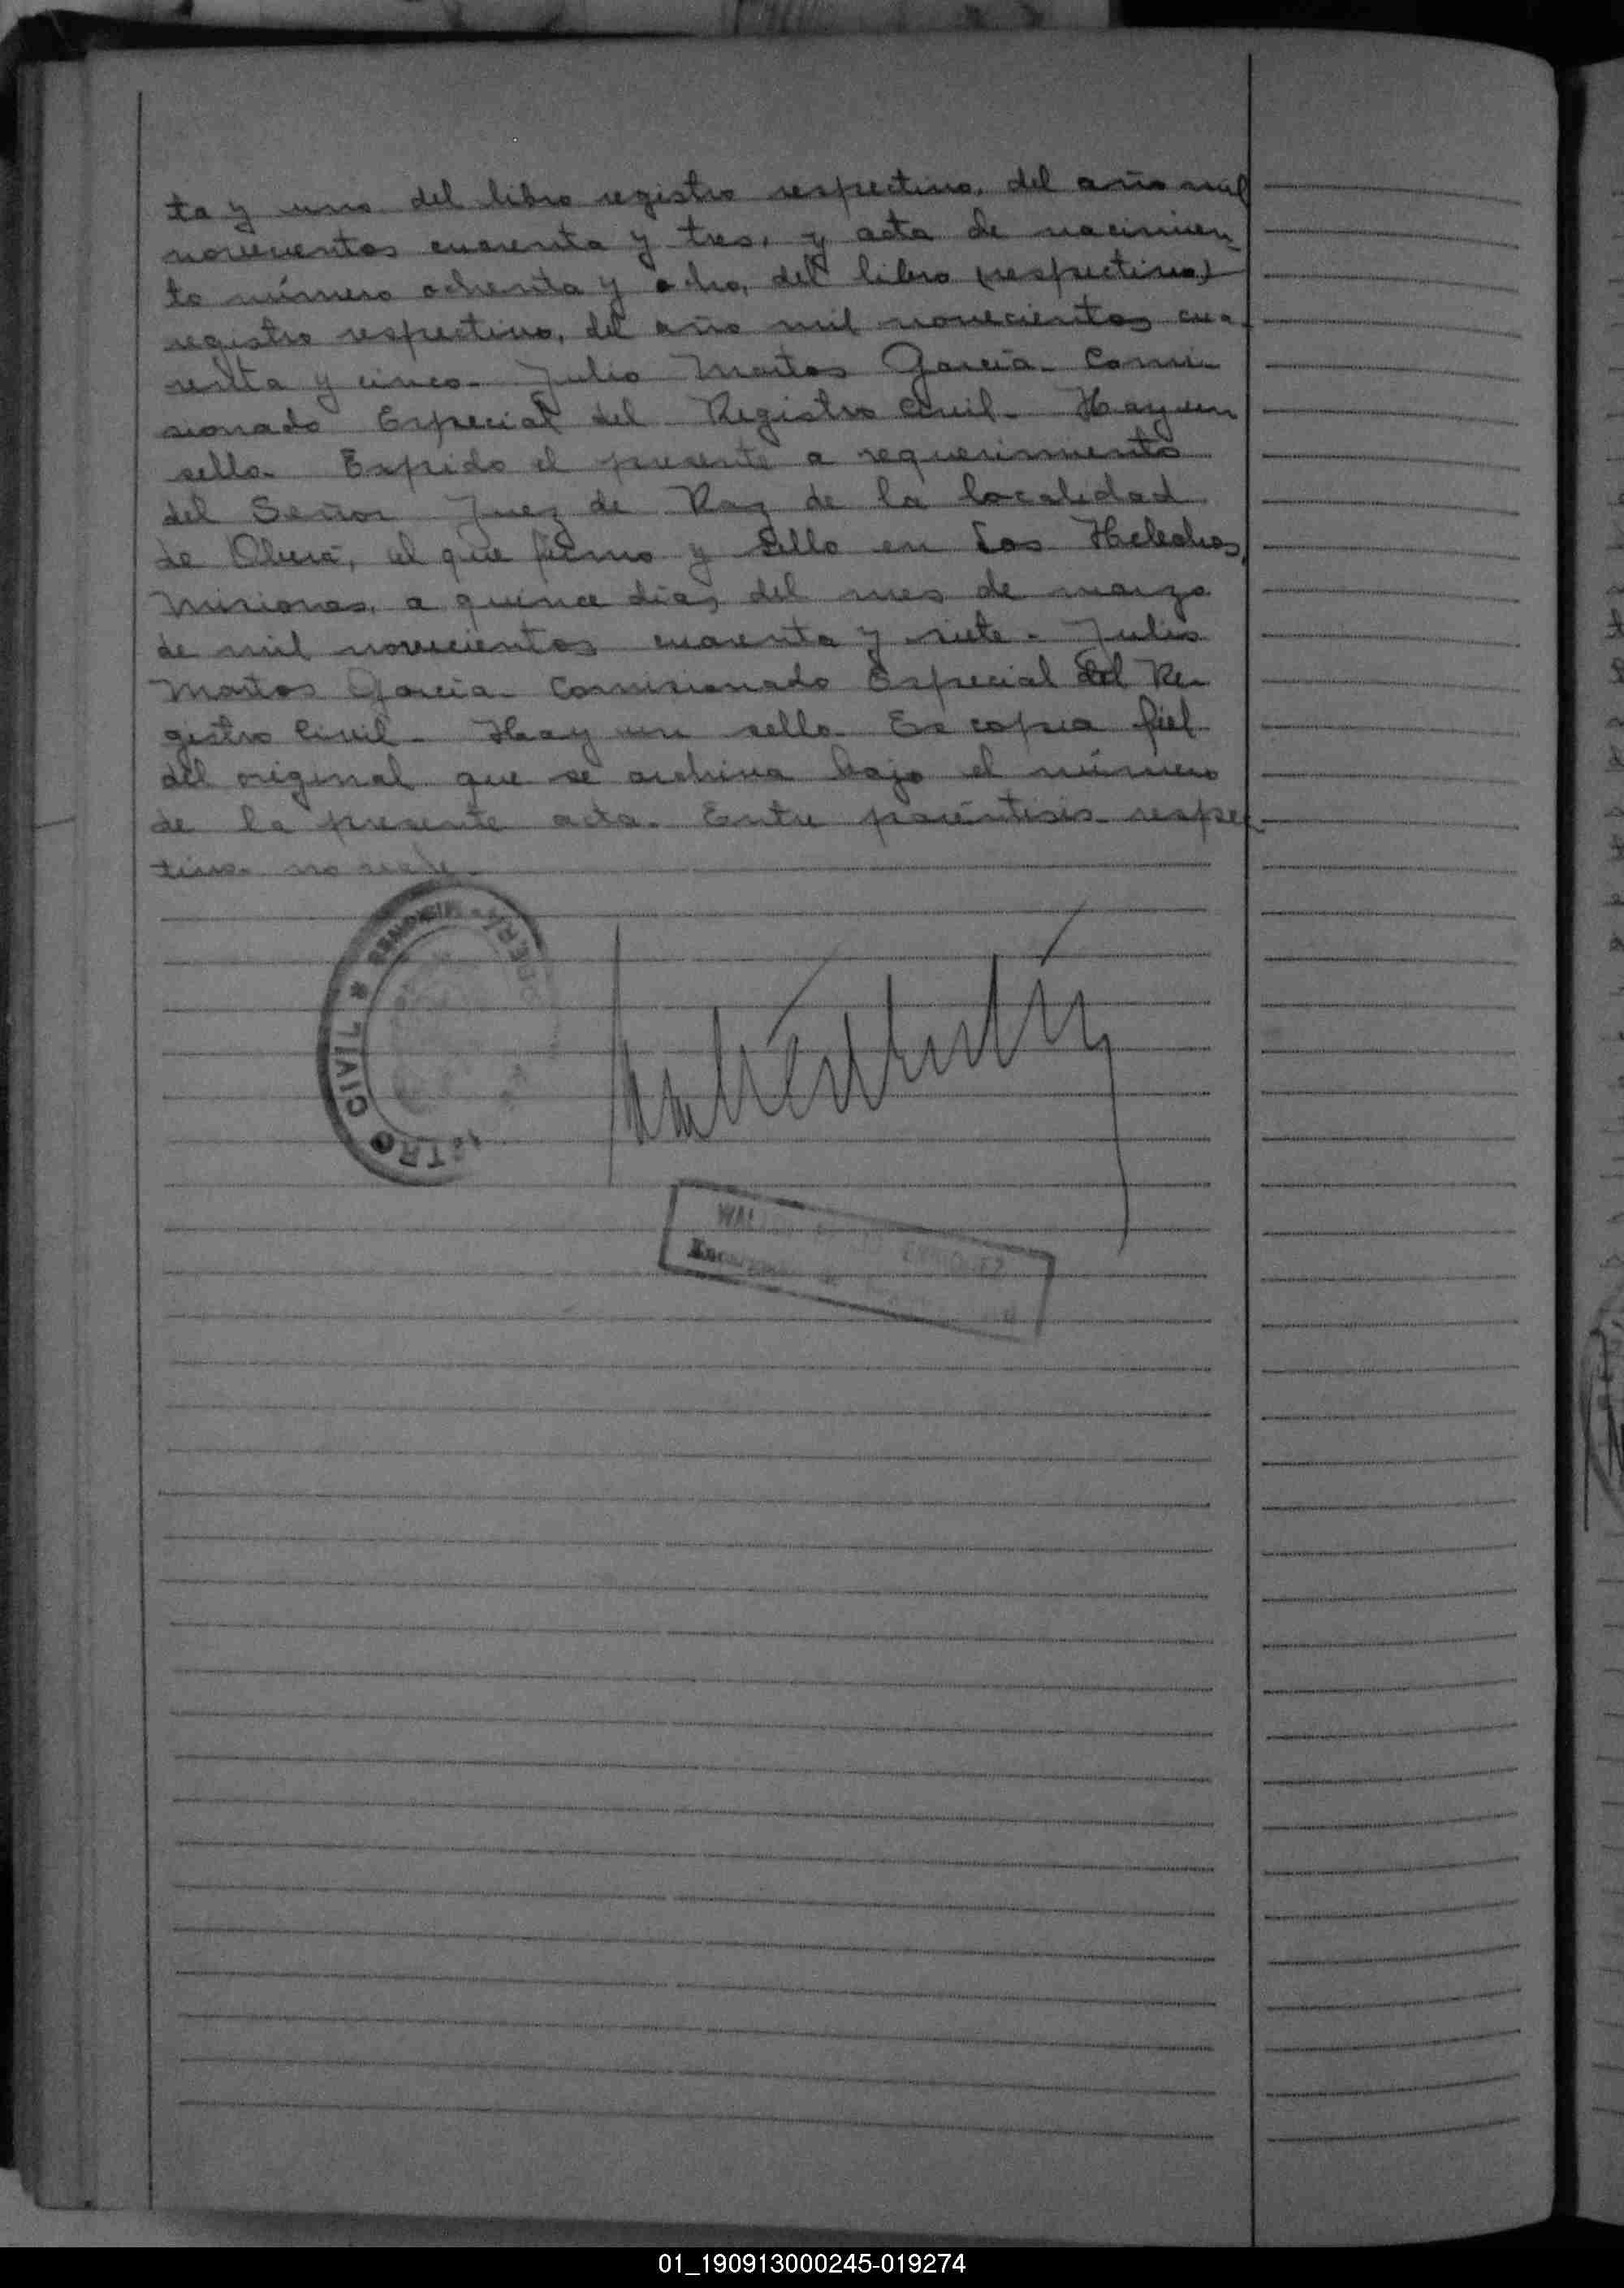 ta y uno del libro registro respectivo, del año mil
novecientos cuarenta y tres, y acta de nacimien
to número ochenta y ocho, del libro (respectivo)
registro respectivo, del año mil novecientos cua-
renta y cinco. Julio Martos García. Comi-
sionado Especial del Registro Civil. Hay un
sello. Expido el presente a requerimiento
del Señor Juez de Paz de la localidad
de Oberá, el que firmo y sello en Los Helechos,
Misiones, a quince días del mes de marzo
de mil novecientos cuarenta y siete. Julio
Martos García. Comisionado Especial del Re-
gistro Civil. Hay un sello. Es copia fiel
del original que se archiva bajo el número
de la presente acta. Entre paréntesis respec
tivo. no vale.
CIVIL * MISIONES
OBERÁ
01_190913000245-019274